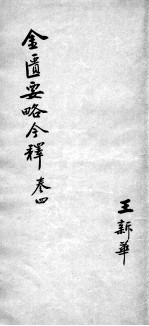 金匱要略今釋 卷四
王新華